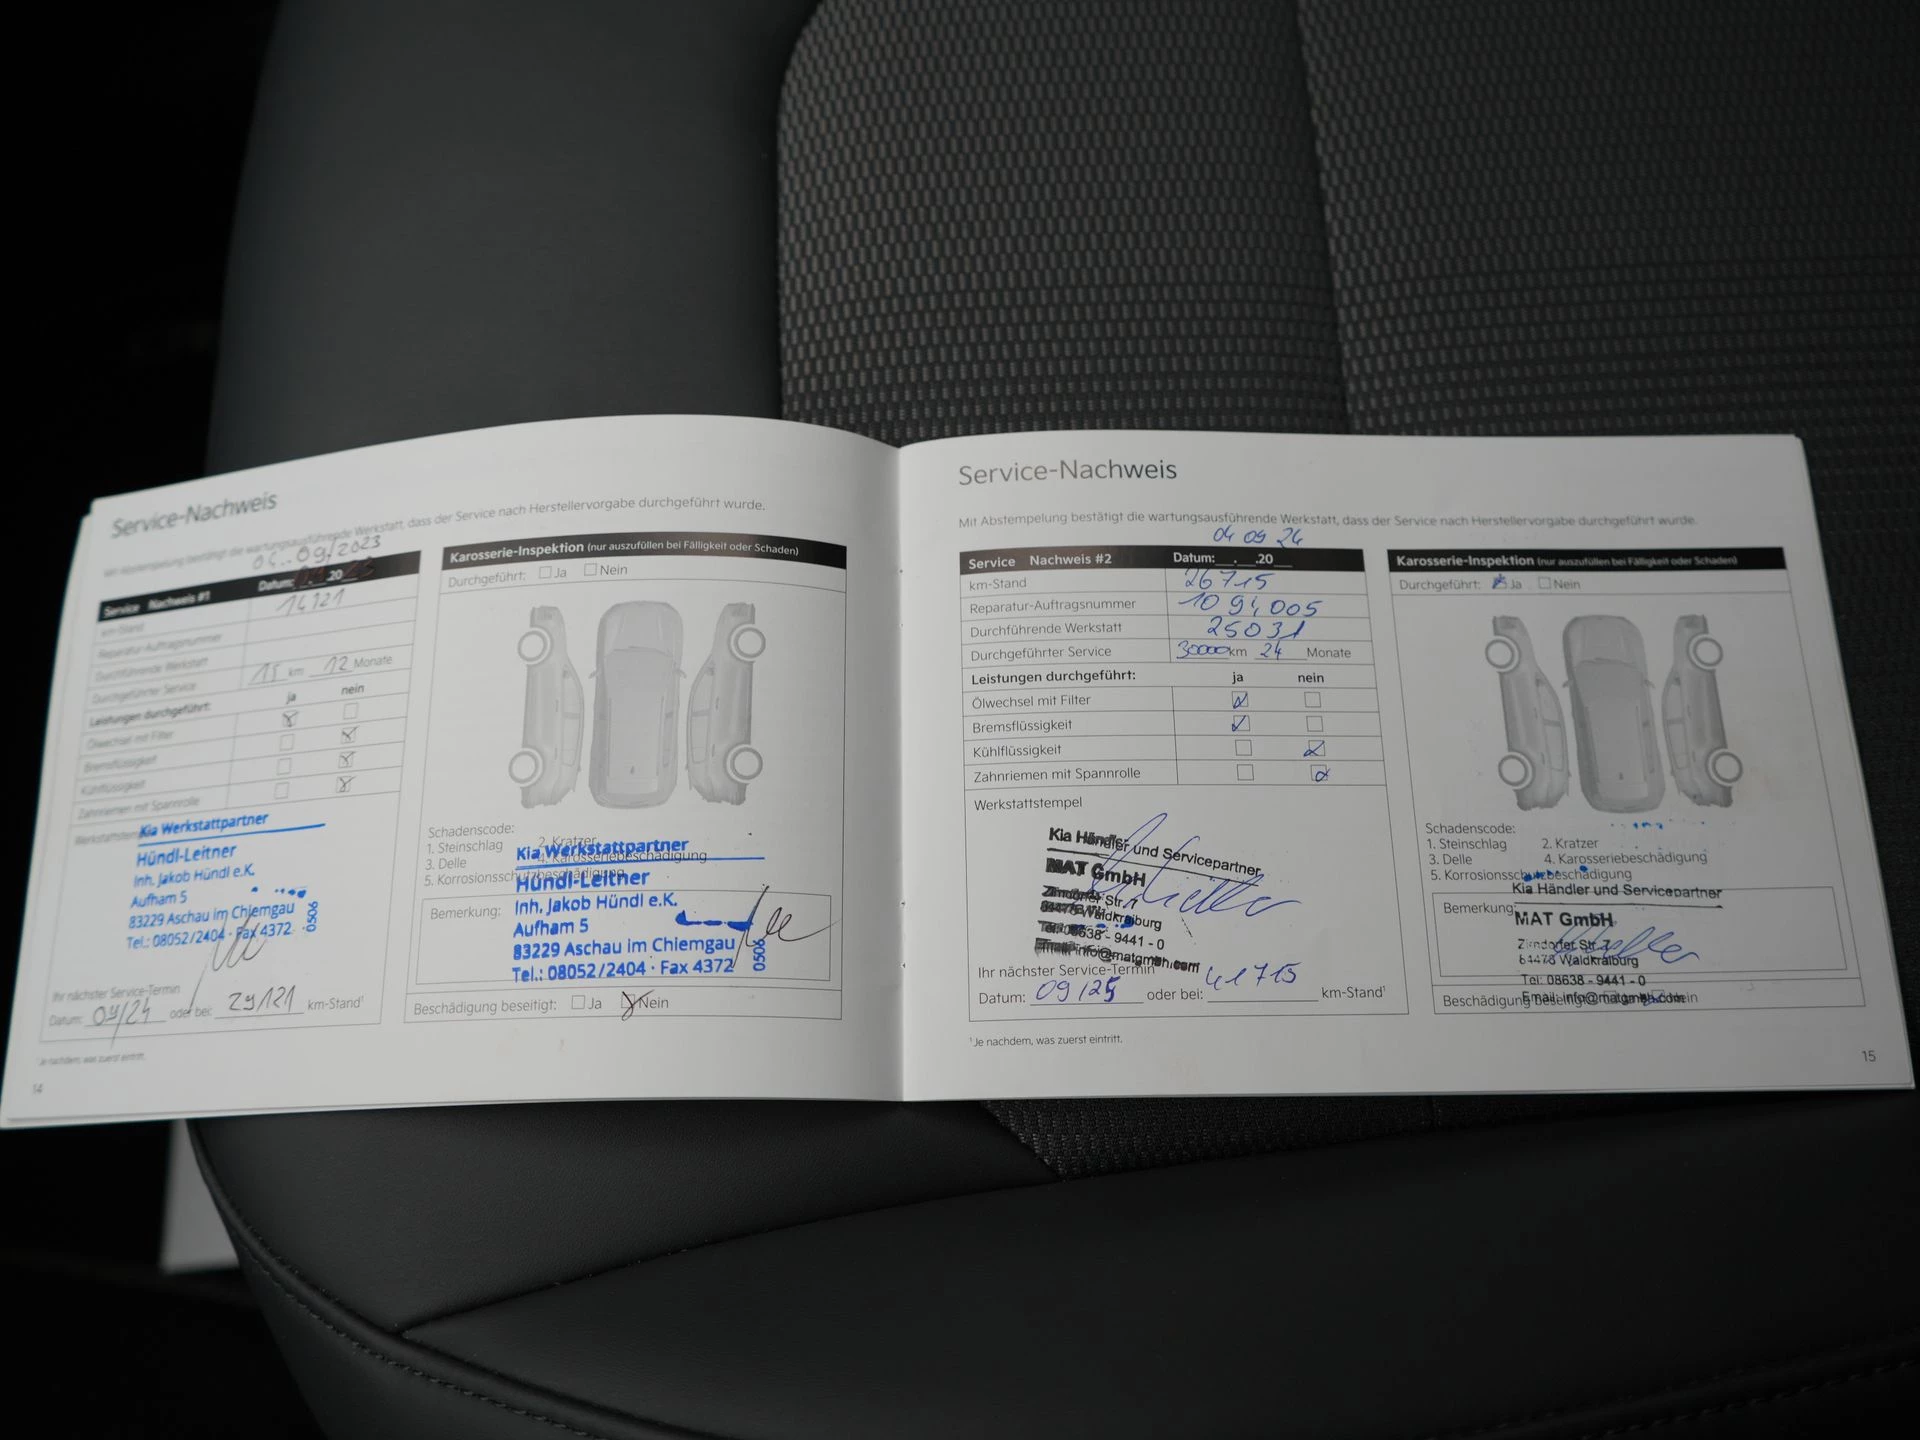 Service-Nachweis
Mit Abstempelung bestätigt die wartungsausführende Werkstatt, dass der Service nach Herstellervorgabe durchgeführt wurde.
04..09/2023
Service Nachweis #1 Datum: 20
km-Stand 14121
Reparatur-Auftragsnummer
Durchführende Werkstatt
Durchgeführter Service 15 km 12 Monate
Leistungen durchgeführt: ja nein
Ölwechsel mit Filter
Bremsflüssigkeit
Kühlflüssigkeit
Zahnriemen mit Spannrolle
Kia Werkstattpartner
Hündl-Leitner
Inh. Jakob Hündl e.K.
Aufham 5
83229 Aschau im Chiemgau
Tel.: 08052/2404 · Fax 4372
0506
Ihr nächster Service-Termin
Datum: 09/24 oder bei: 29121 km-Stand¹
¹Je nachdem, was zuerst eintritt.
14
Karosserie-Inspektion (nur auszufüllen bei Fälligkeit oder Schaden)
Durchgeführt: Ja Nein
Schadenscode:
1. Steinschlag 2. Kratzer
3. Delle 4. Karosseriebeschädigung
5. Korrosionsschutzbeschädigung
Kia Werkstattpartner
Hündl-Leitner
Bemerkung: Inh. Jakob Hündl e.K.
Aufham 5
83229 Aschau im Chiemgau
Tel.: 08052/2404 · Fax 4372
0506
Beschädigung beseitigt: Ja Nein
Service-Nachweis
Mit Abstempelung bestätigt die wartungsausführende Werkstatt, dass der Service nach Herstellervorgabe durchgeführt wurde.
04 09 24
Service Nachweis #2 Datum: __.__.20__
km-Stand 26715
Reparatur-Auftragsnummer 1091,005
Durchführende Werkstatt 25031
Durchgeführter Service 30000 km 24 Monate
Leistungen durchgeführt: ja nein
Ölwechsel mit Filter
Bremsflüssigkeit
Kühlflüssigkeit
Zahnriemen mit Spannrolle
Werkstattstempel
Kia Händler und Servicepartner
MAT GmbH
Zirndorfer Str. 7
84478 Waldkraiburg
Tel: 08638 - 9441 - 0
Email: info@matgmbh.com
Ihr nächster Service-Termin
Datum: 09/25 oder bei: 41715 km-Stand¹
¹Je nachdem, was zuerst eintritt.
Karosserie-Inspektion (nur auszufüllen bei Fälligkeit oder Schaden)
Durchgeführt: Ja Nein
Schadenscode:
1. Steinschlag 2. Kratzer
3. Delle 4. Karosseriebeschädigung
5. Korrosionsschutzbeschädigung
Kia Händler und Servicepartner
Bemerkung: MAT GmbH
Zirndorfer Str. 7
84478 Waldkraiburg
Tel: 08638 - 9441 - 0
Email: info@matgmbh.com
Beschädigung beseitigt: Nein
15